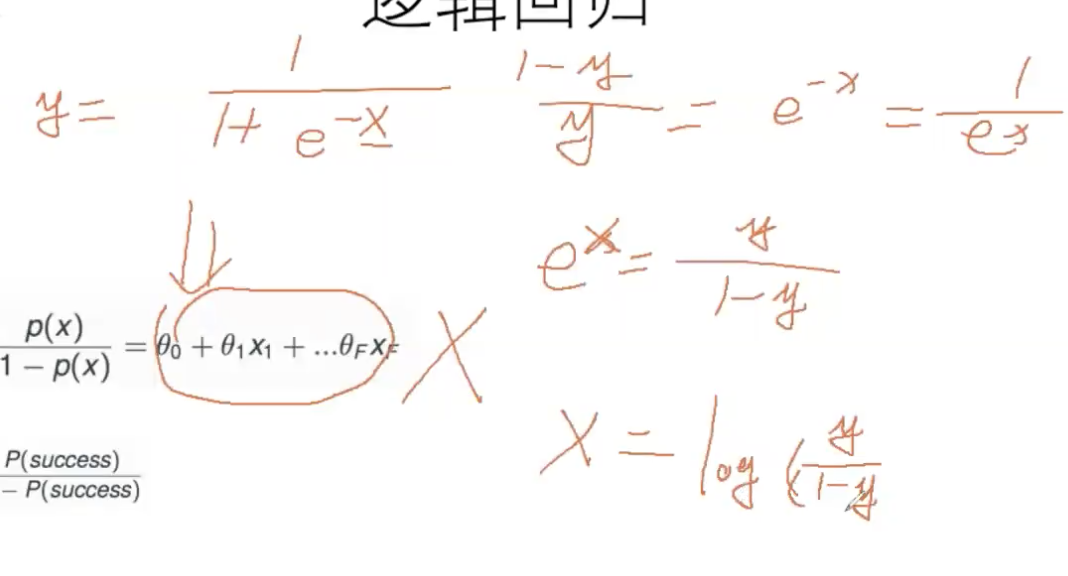 逻辑回归
y = 1 / (1 + e^{-x})    (1-y) / y = e^{-x} = 1 / e^x
e^x = y / (1-y)
p(x) / (1 − p(x)) = θ₀ + θ₁x₁ + ...θ_F x_F    X
x = log (y / (1-y)
P(success) / (− P(success))